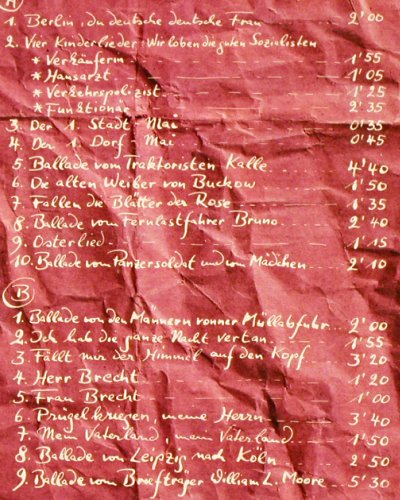 A
1. Berlin, du deutsche deutsche Frau 2'00
2. Vier Kinderlieder: Wir loben die guten Sozialisten
* Verkäuferin 1'55
* Hausarzt 1'05
* Verkehrspolizist 1'25
* Funktionär 2'35
3. Der 1. Stadt-Mai 0'35
4. Der 1. Dorf-Mai 0'45
5. Ballade vom Traktoristen Kalle 4'40
6. Die alten Weiber von Buckow 1'50
7. Fallen die Blätter der Rose 1'35
8. Ballade vom Fernlastfahrer Bruno 2'40
9. Osterlied 1'15
10. Ballade vom Panzersoldat und vom Mädchen 2'10
B
1. Ballade von den Männern vonner Müllabfuhr 2'00
2. Ich hab die ganze Nacht vertan 1'55
3. Fällt mir der Himmel auf den Kopf 3'20
4. Herr Brecht 1'20
5. Frau Brecht 1'00
6. Prügel kriegen, meine Herrn 3'40
7. Mein Vaterland, mein Vaterland 1'50
8. Ballade von Leipzig nach Köln 2'50
9. Ballade vom Briefträger William L. Moore 5'30